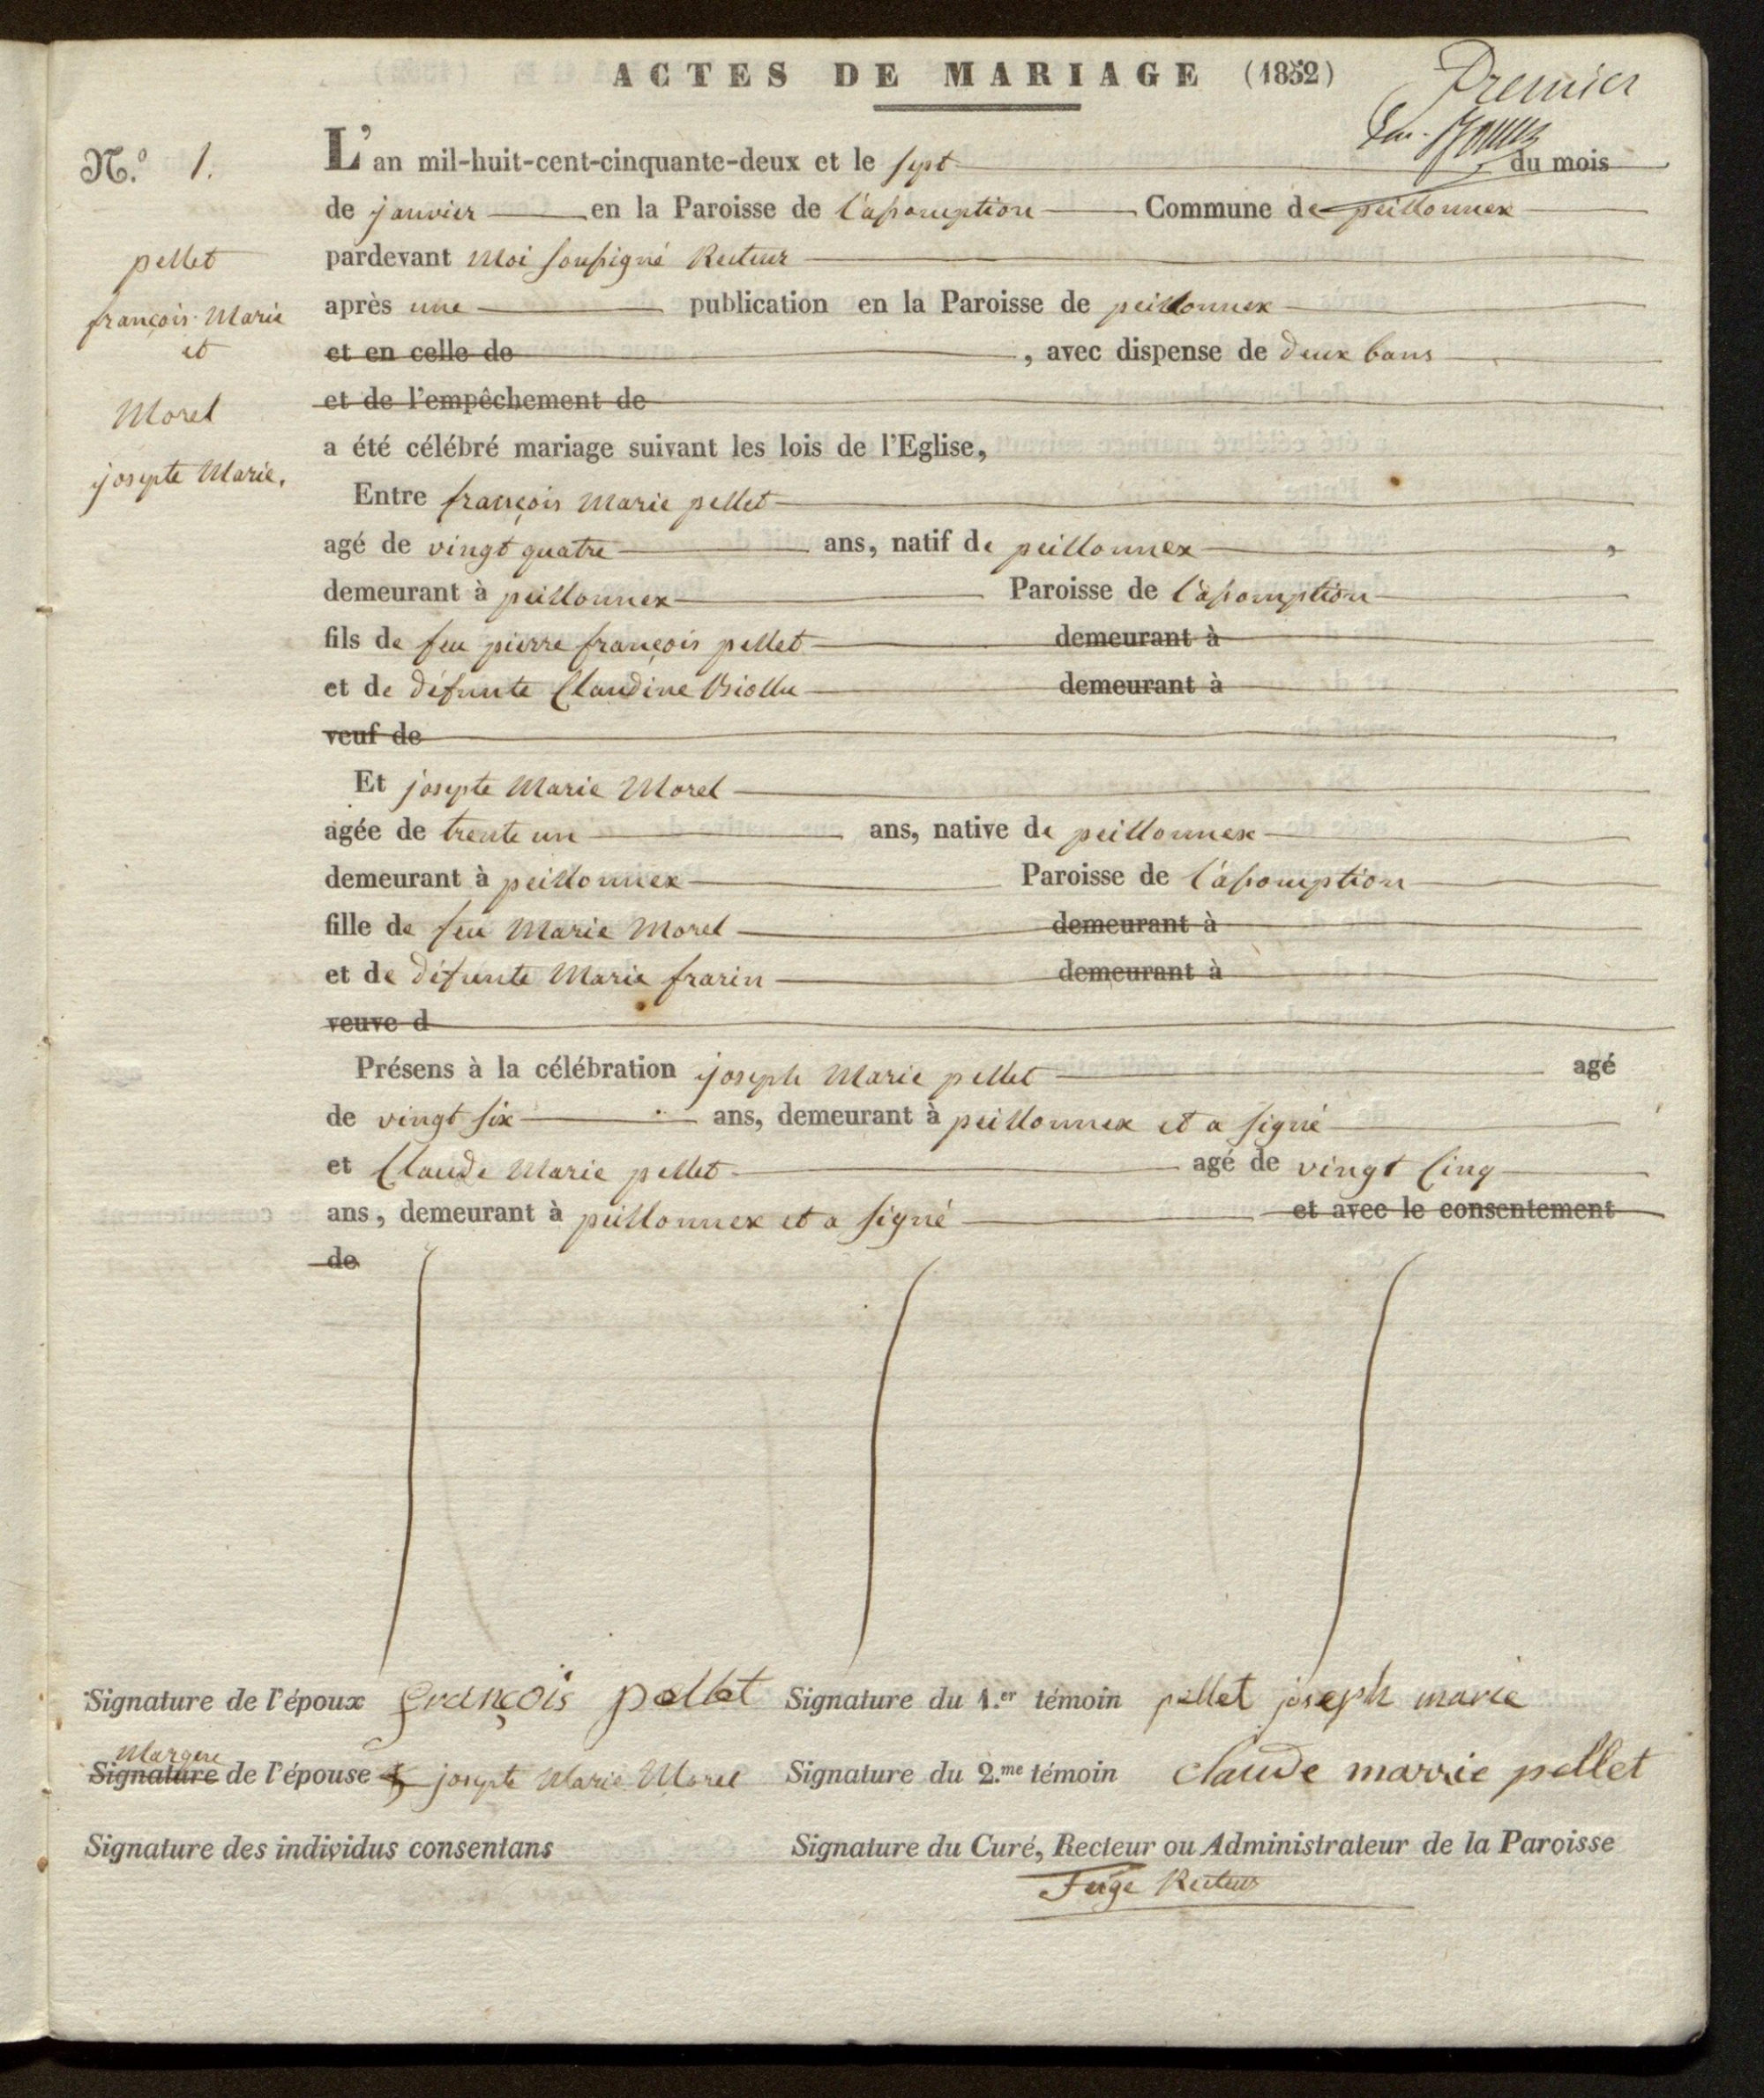 ACTES DE MARIAGE (1852)
Premier
N.° 1.
L'an mil-huit-cent-cinquante-deux et le sept du mois
de janvier en la Paroisse de l'assomption Commune de peillonnex
pellet
françois Marie
et
Morel
josepte Marie.
pardevant Moi soussigné Recteur
après une publication en la Paroisse de peillonnex
et en celle de , avec dispense de deux bans
et de l'empêchement de
a été célébré mariage suivant les lois de l'Eglise,
Entre françois Marie pellet
agé de vingt quatre ans, natif de peillonnex ,
demeurant à peillonnex Paroisse de l'assomption
fils de feu pierre françois pellet demeurant à
et de défunte Claudine demeurant à
veuf de
Et josepte Marie Morel
agée de trente un ans, native de peillonnex
demeurant à peillonnex Paroisse de l'assomption
fille de feu Marie Morel demeurant à
et de défunte Marie frarin demeurant à
veuve d
Présens à la célébration joseph Marie pellet agé
de vingt six ans, demeurant à peillonnex et a signé
et Claude Marie pellet agé de vingt Cinq
ans, demeurant à peillonnex et a signé et avec le consentement
de
Signature de l'époux françois pellet Signature du 1.er témoin pellet joseph marie
Marque
Signature de l'épouse josepte Marie Morel Signature du 2.me témoin claude marrie pellet
Signature des individus consentans Signature du Curé, Recteur ou Administrateur de la Paroisse
Feige Recteur